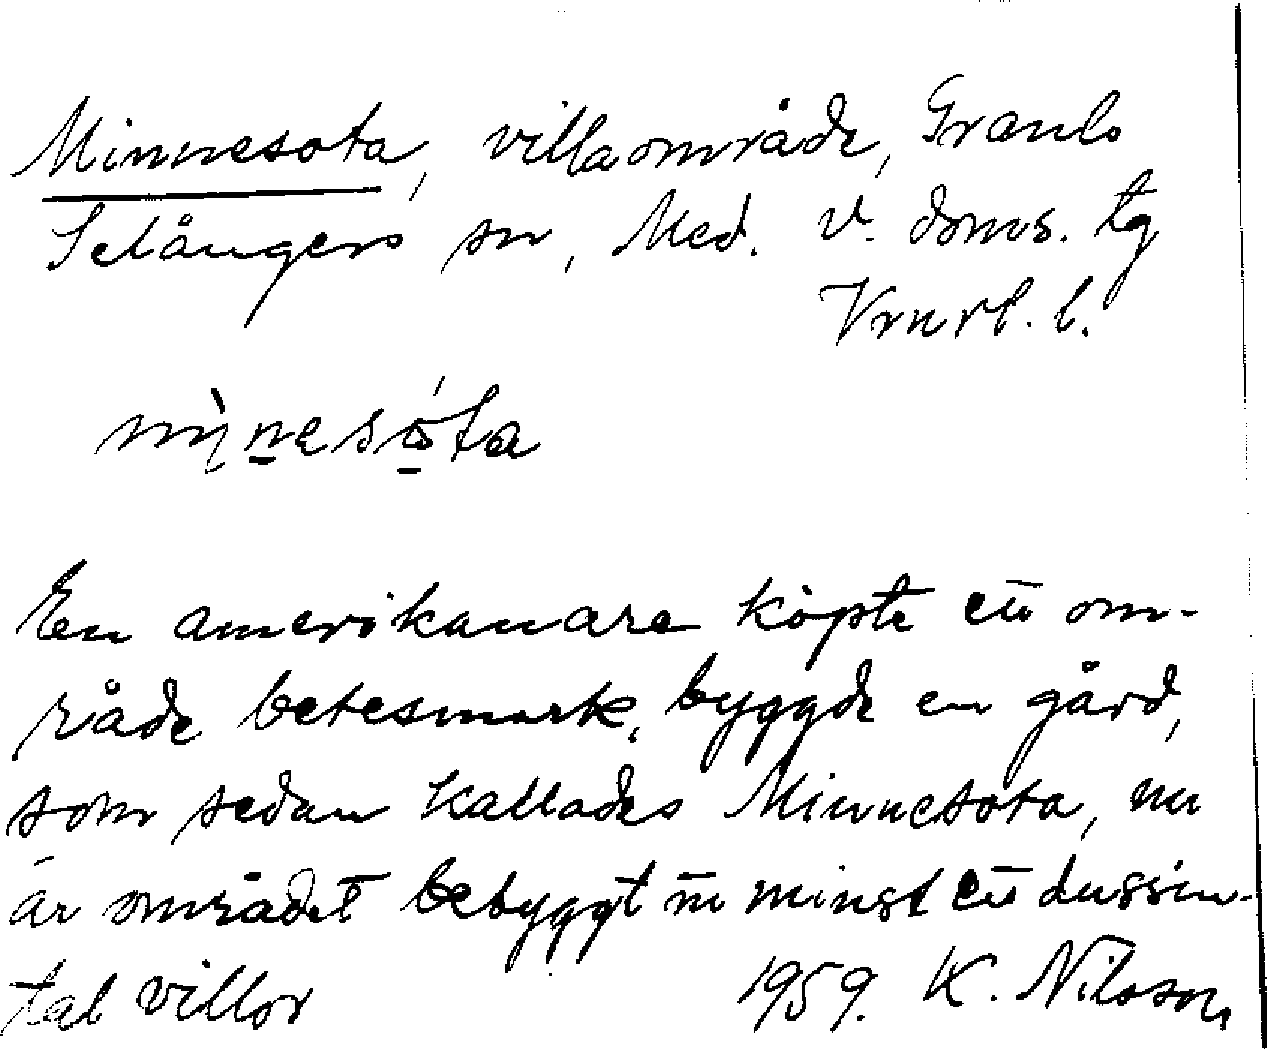 Minnesota, villaområde, Granlo
Selångers sn, Med. v. doms. tg
l.
minesota
En amerikanare köpte ett om-
råde betesmark, byggde en gård,
som sedan kallades Minnesota, nu
är området bebyggt m minst ett dussin-
tal villor 1959. K. Nilsson